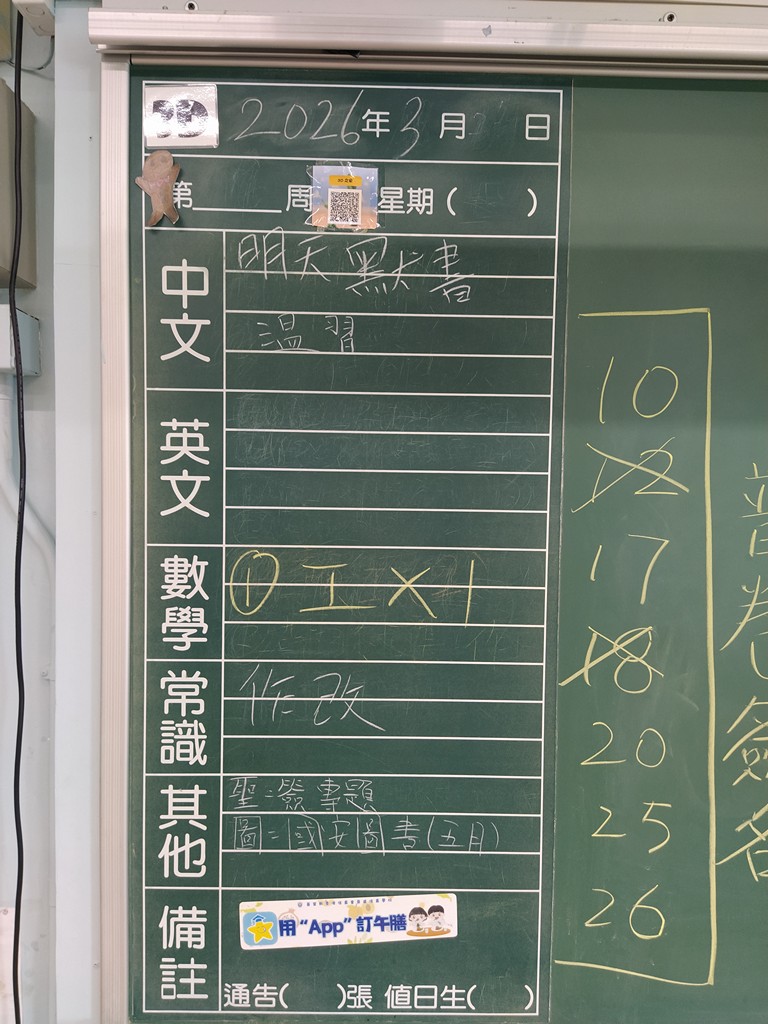 3D 2026年3月 日
第 周 星期( )
中文
明天默書
溫習
英文
數學
① 工 X 1
常識
作改
其他
聖：簽專題
圖：國安圖書(五月)
備註
用“App”訂午膳
通告( )張 值日生( )
10
12
17
18
20
25
26
普卷簽名